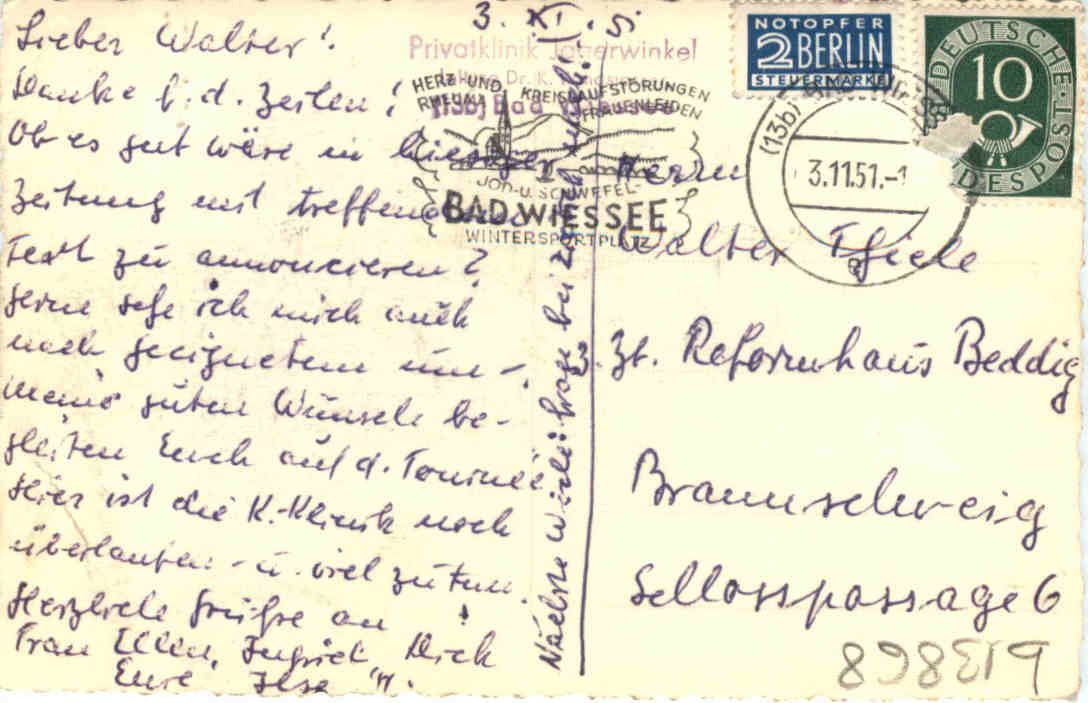 3. XI. 51
Lieber Walter!
Danke f. d. Zeilen!
Ob es gut wäre in
Zeitung mit treffendem
Text zu annoncieren?
Gerne sehe ich mich auch
nach geeignetem um -,
meine guten Wünsche be-
gleiten Euch auf d. Tournée
Hier ist die K.-Klinik noch
überlaufen - u. viel zu tun.
Herzliche Grüße an
Frau Ellen, Ingrid, Dich
Eure Ilse
Nächste Woche
Privatklinik Jägerwinkel
Dr. K.
(13b) Bad Wiessee
HERZ- UND KREISLAUFSTÖRUNGEN
RHEUMA FRAUENLEIDEN
JOD- U. SCHWEFEL-
BAD WIESSEE
WINTERSPORTPLATZ
NOTOPFER
2 BERLIN
STEUERMARKE
DEUTSCHE
10
BUNDESPOST
(13b) BAD WIESSEE
3.11.51.-1
a
Herrn
Walter Thiele
z. Zt. Reformhaus Beddig
Braunschweig
Schlosspassage 6